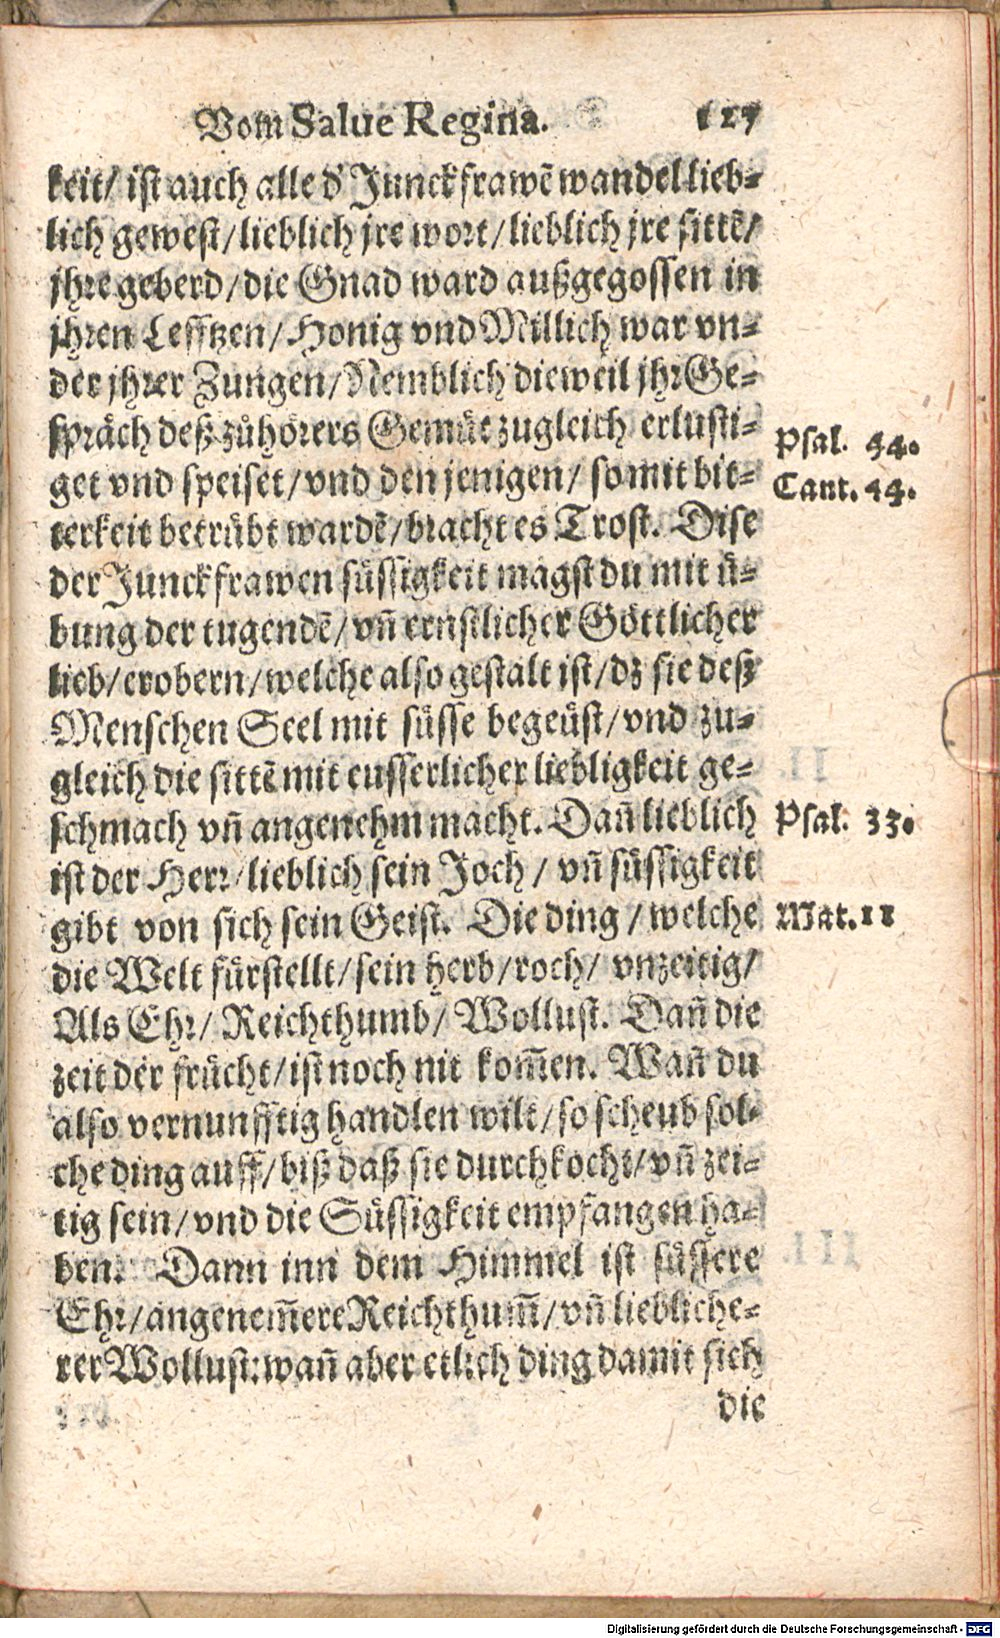 Vom Salue Regina. 127
keit/ ist auch alle d' Junckfrawē wandel lieb⸗
lich gewest/lieblich jre wort/lieblich jre sittē/
jhre geberd/die Gnad ward außgegossen in
jhren Lefftzen/Honig vnd Millich war vn⸗
der jhrer Zungen/Nemblich dieweil jhr Ge⸗
spräch deß zůhörers Gemüt zugleich erlusti⸗
Psal. 44.
get vnd speiset/vnd den jenigen/ so mit bit⸗
Cant. 44.
terkeit betrübt wardē/bracht es Trost. Dise
der Junckfrawen süssigkeit magst du mit ü⸗
bung der tugendē/vñ ernstlicher Göttlicher
lieb/erobern/welche also gestalt ist/dz sie deß
Menschen Seel mit süsse begeüst/vnd zu⸗
gleich die sittē mit eusserlicher liebligkeit ge⸗
schmach vñ angenehm macht. Dañ lieblich
Psal. 33.
ist der Herr/lieblich sein Joch/ vñ süssigkeit
gibt von sich sein Geist. Die ding/welche
Mat. 11
die Welt fürstellt/sein herb/roch/ vnzeitig/
Als Ehr/ Reichthumb/ Wollust. Dañ die
zeit der frücht/ist noch nit kom̄en. Wañ du
also vernunfftig handlen wilt/so scheub sol⸗
che ding auff/biß daß sie durchkocht/vñ zei⸗
tig sein/vnd die Süssigkeit empfangen ha⸗
ben. Dann inn dem Himmel ist süssere
Ehr/angenem̄ere Reichthum̄/vñ liebliche⸗
rer Wollust: wañ aber etlich ding damit sich
die
Digitalisierung gefördert durch die Deutsche Forschungsgemeinschaft - DFG